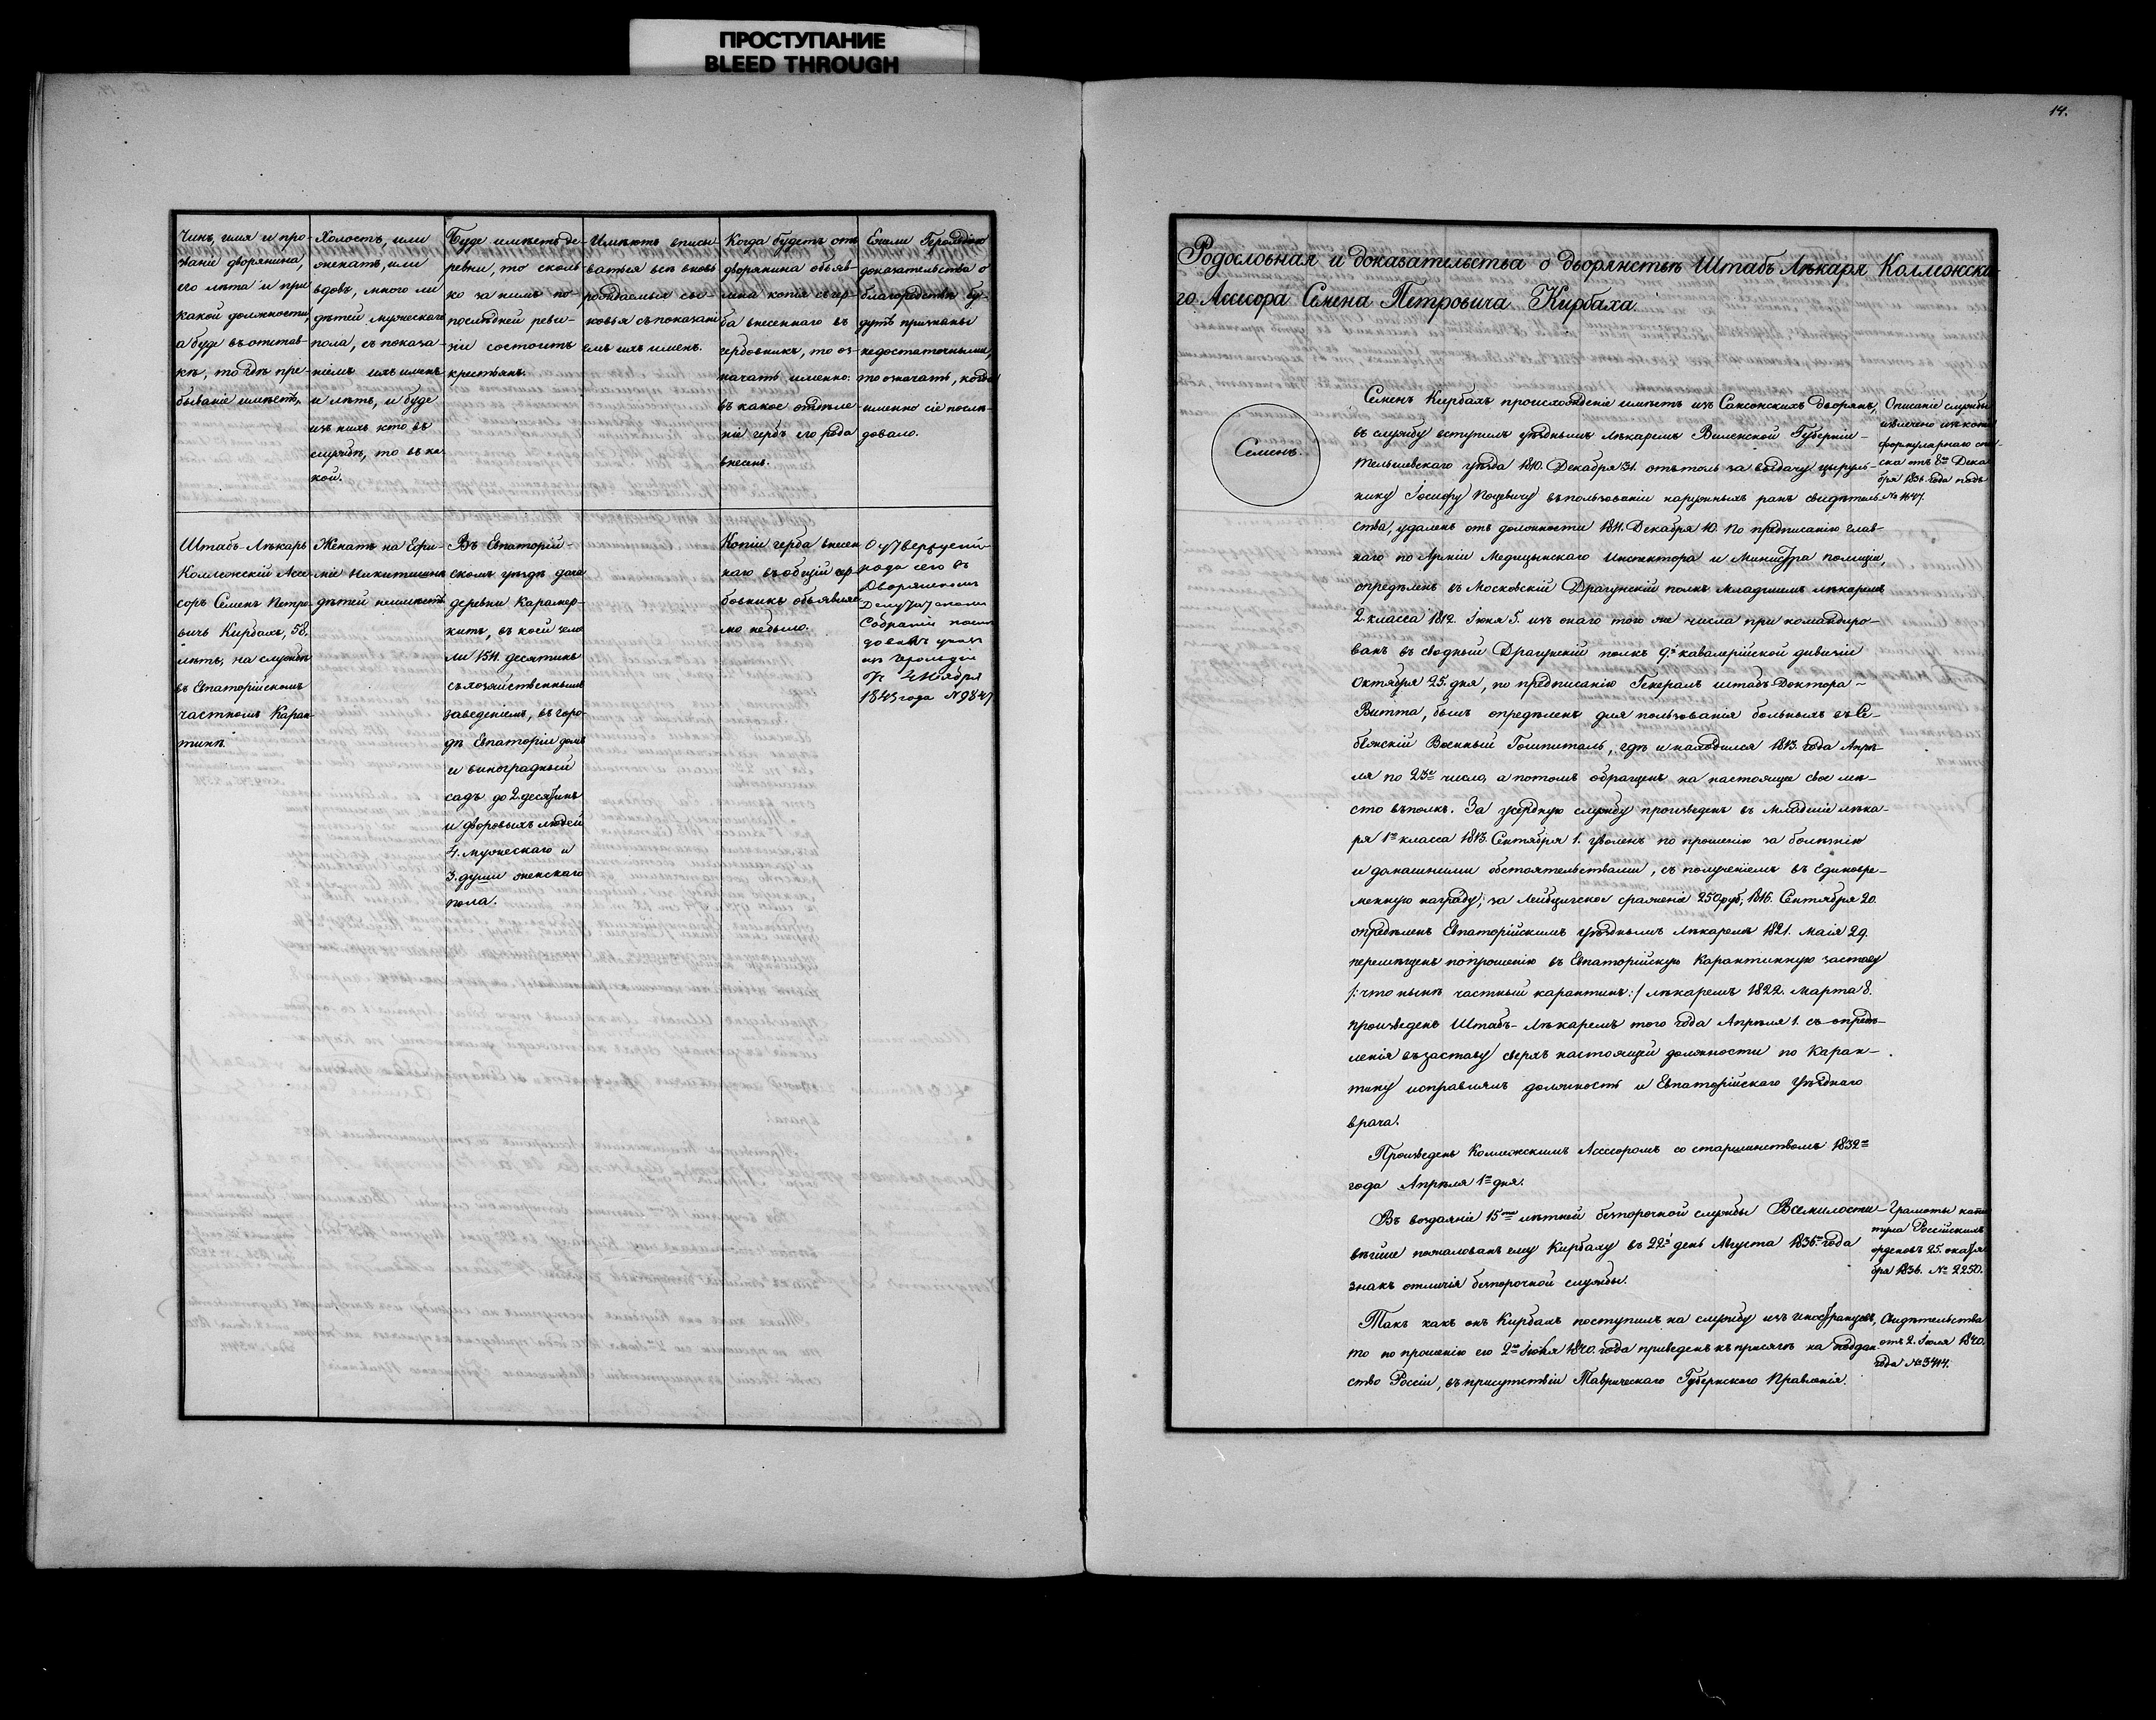 ПРОСТУПАНИЕ
BLEED THROUGH
Чинъ, имя и про-
званіе дворянина,
его лѣта и при
какой должности,
а буде въ отстав-
кѣ, то гдѣ пре-
бываніе имѣетъ.
Холостъ, или
женатъ, или
вдовъ, много ли
дѣтей мужескаго
пола, съ показа-
ніемъ ихъ именъ
и лѣтъ, и буде
изъ нихъ кто въ
службѣ, то въ ка
кой.
Буде имѣетъ де-
ревни, то сколь-
ко за нимъ по-
послѣдней реви-
зіи состоитъ
крестьянъ.
Имѣютъ вписы
ваться всѣ вновь
рождаемыя сы-
новья съ показані
емъ ихъ именъ.
Когда будетъ отъ
дворянина объяв-
лена копія съ гер-
ба внесеннаго въ
гербовникъ, то оз-
начать именно:
въ какое отдѣле
ніе гербъ его рода
внесенъ.
Ежели Герольдіею
доказательства о
благородствѣ бу-
дутъ признаны
недостаточными,
то означать, когда
именно сіе послѣ-
довало.
Штабъ-Лѣкарь
Коллежскій Ассе-
соръ Семенъ Петро-
вичь Кирбахъ, 58.
лѣтъ, на службѣ
въ Евпаторійскомъ
частномъ Каран-
тинѣ.
Женатъ на Ефи-
міи Никитишнѣ
дѣтей неимѣетъ.
Въ Евпаторій-
скомъ уѣздѣ дача
деревни Карамер-
китъ, въ коей зем
ли 1511. десятинъ
съ хозяйственнымъ
заведеніемъ, въ горо-
дѣ Евпаторіи домъ
и виноградный
садъ до 2. десятинъ
и дворовыхъ людей
4. мужескаго и
3. души женскаго
пола.
Копіи герба внесен
наго въ общій гер-
бовникъ объявле
но небыло.
О утвержденіи
рода сего въ
Дворянскомъ
Депутатскомъ
Собраніи
указъ
изъ Герольдіи
отъ 4 Ноября
1843 года № 9847
14.
Родословная и доказательства о дворянствѣ Штабъ Лѣкаря Коллежска-
го Ассесора Семена Петровича Кирбаха.
Семенъ
Семенъ Кирбахъ происхожденіе имѣетъ изъ Саксонскихъ дворянъ,
въ службу вступилъ уѣзднымъ лѣкаремъ Виленской Губерніи-
Тельшевскаго уѣзда 1810. Декабря 31. оттоль за выдачу цыруль-
нику Іосифу Поцевичу въ пользованіи наружныхъ ранъ свидѣтель-
ства, удаленъ отъ должности 1811. Декабря 10. По предписанію глав-
наго по Арміи Медицинскаго Инспектора и Министра полиціи,
опредѣленъ въ Московскій Драгунскій полкъ младшимъ лѣкаремъ
2 класса 1812. Іюня 5. изъ онаго того же числа при командиро-
ванъ въ сводный Драгунскій полкъ 9й кавалерійской дивизіи
Октября 25. дня, по предписанію Генералъ штабъ-Доктора-
Витта, былъ опредѣленъ для пользованія больныхъ въ Се-
бежскій Военный Гошпиталь, гдѣ и находился 1813. года Апрѣ-
ля по 23е число, а потомъ обращенъ на настоящее свое мѣ-
сто въ полкъ. За усердную службу произведенъ въ младшіе лѣка-
ря 1го класса 1813. Сентября 1. уволенъ по прошенію за болѣзнію
и домашними обстоятельствами, съ полученіемъ въ единовре-
менную награду, за Лейпцигское сраженіе 250 руб., 1816. Сентября 20.
опредѣленъ Евпаторійскимъ уѣзднымъ Лѣкаремъ 1821. Маія 29.
перемѣщенъ по прошенію въ Евпаторійскую Карантинную заставу
/: что нынѣ частный карантинъ :/ лѣкаремъ 1822. Марта 8.
произведенъ Штабъ-Лѣкаремъ того года Апрѣля 1. съ опредѣ-
ленія въ заставу сверхъ настоящей должности по Каран-
тину исправлялъ должность и Евпаторійскаго Уѣзднаго
врача.
Произведенъ Коллежскимъ Ассесоромъ со старшинствомъ 1832го
года Апрѣля 1го дня.
Въ воздаяніе 15ти лѣтней безпорочной службы Всемилости-
вѣйше пожалованъ ему Кирбаху въ 22й день Августа 1835го года
знакъ отличія безпорочной службы.
Такъ какъ онъ Кирбахъ поступилъ на службу изъ иностранцевъ,
то по прошенію его 2го Іюля 1840. года приведенъ къ присягѣ на поддан-
ство Россіи, въ присутствіи Таврическаго Губернскаго Правленія.
Описаніе службы
извлечено изъ копіи
формулярнаго спи-
ска отъ 8го Дека-
бря 1836. года подъ
№ 1647.
Грамоты капи
тула Россійскихъ
орденовъ 25.
бря 1836. № 2250.
Свидѣтельства
отъ 2. Іюля 1840.
года № 3414.